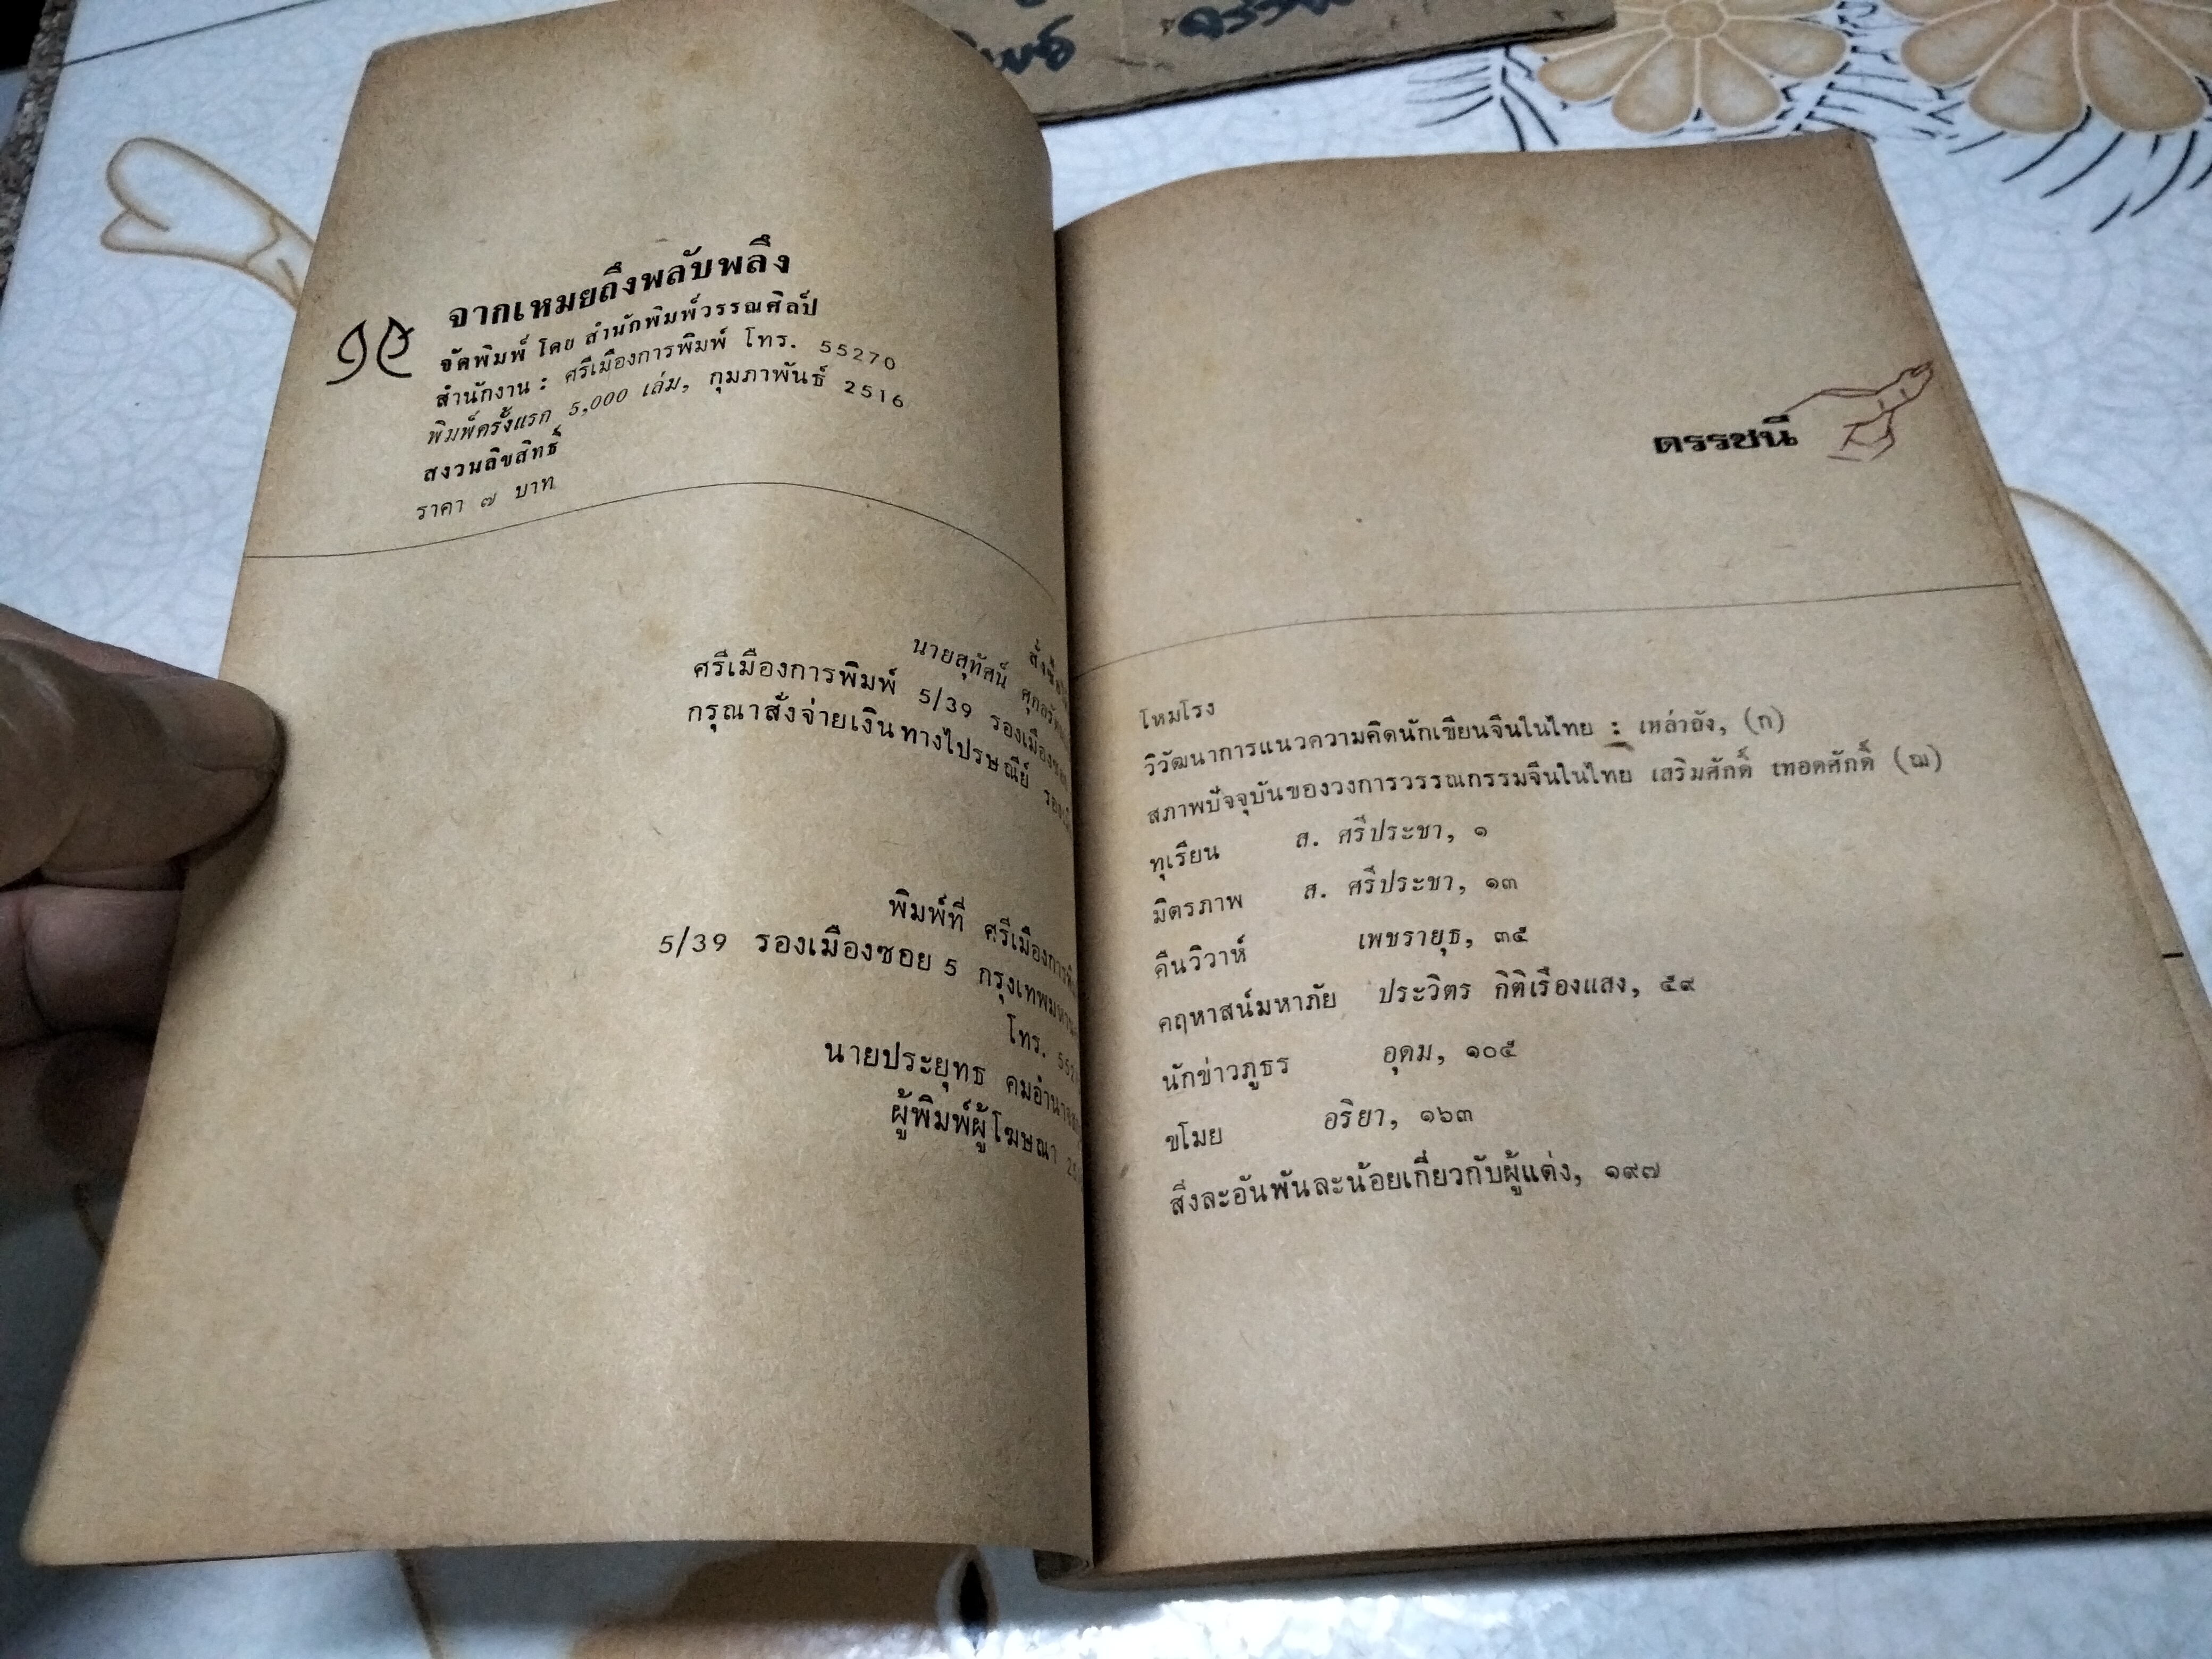 จากเหมยถึงพลับพลึง
จัดพิมพ์ โดย สำนักพิมพ์วรรณศิลป์
สำนักงาน : ศรีเมืองการพิมพ์ โทร. 55270
พิมพ์ครั้งแรก 5,000 เล่ม, กุมภาพันธ์ 2516
สงวนลิขสิทธิ์
ราคา ๗ บาท
นายสุทัศน์
ศรีเมืองการพิมพ์ 5/39 รองเมืองซอย
กรุณาสั่งจ่ายเงินทางไปรษณีย์
พิมพ์ที่ ศรีเมืองการ
5/39 รองเมืองซอย 5 กรุงเทพ
โทร.
นายประยุทธ
ผู้พิมพ์ผู้โฆษณา
ดรรชนี
โหมโรง
วิวัฒนาการแนวความคิดนักเขียนจีนในไทย : เหล่าถัง, (ก)
สภาพปัจจุบันของวงการวรรณกรรมจีนในไทย เสริมศักดิ์ เทอดศักดิ์ (ฌ)
ทุเรียน ส. ศรีประชา, ๑
มิตรภาพ ส. ศรีประชา, ๑๓
คืนวิวาห์ เพชรายุธ, ๓๕
คฤหาสน์มหาภัย ประวิตร กิติเรืองแสง, ๕๙
นักข่าวภูธร อุดม, ๑๐๕
ขโมย อริยา, ๑๖๓
สิ่งละอันพันละน้อยเกี่ยวกับผู้แต่ง, ๑๙๗